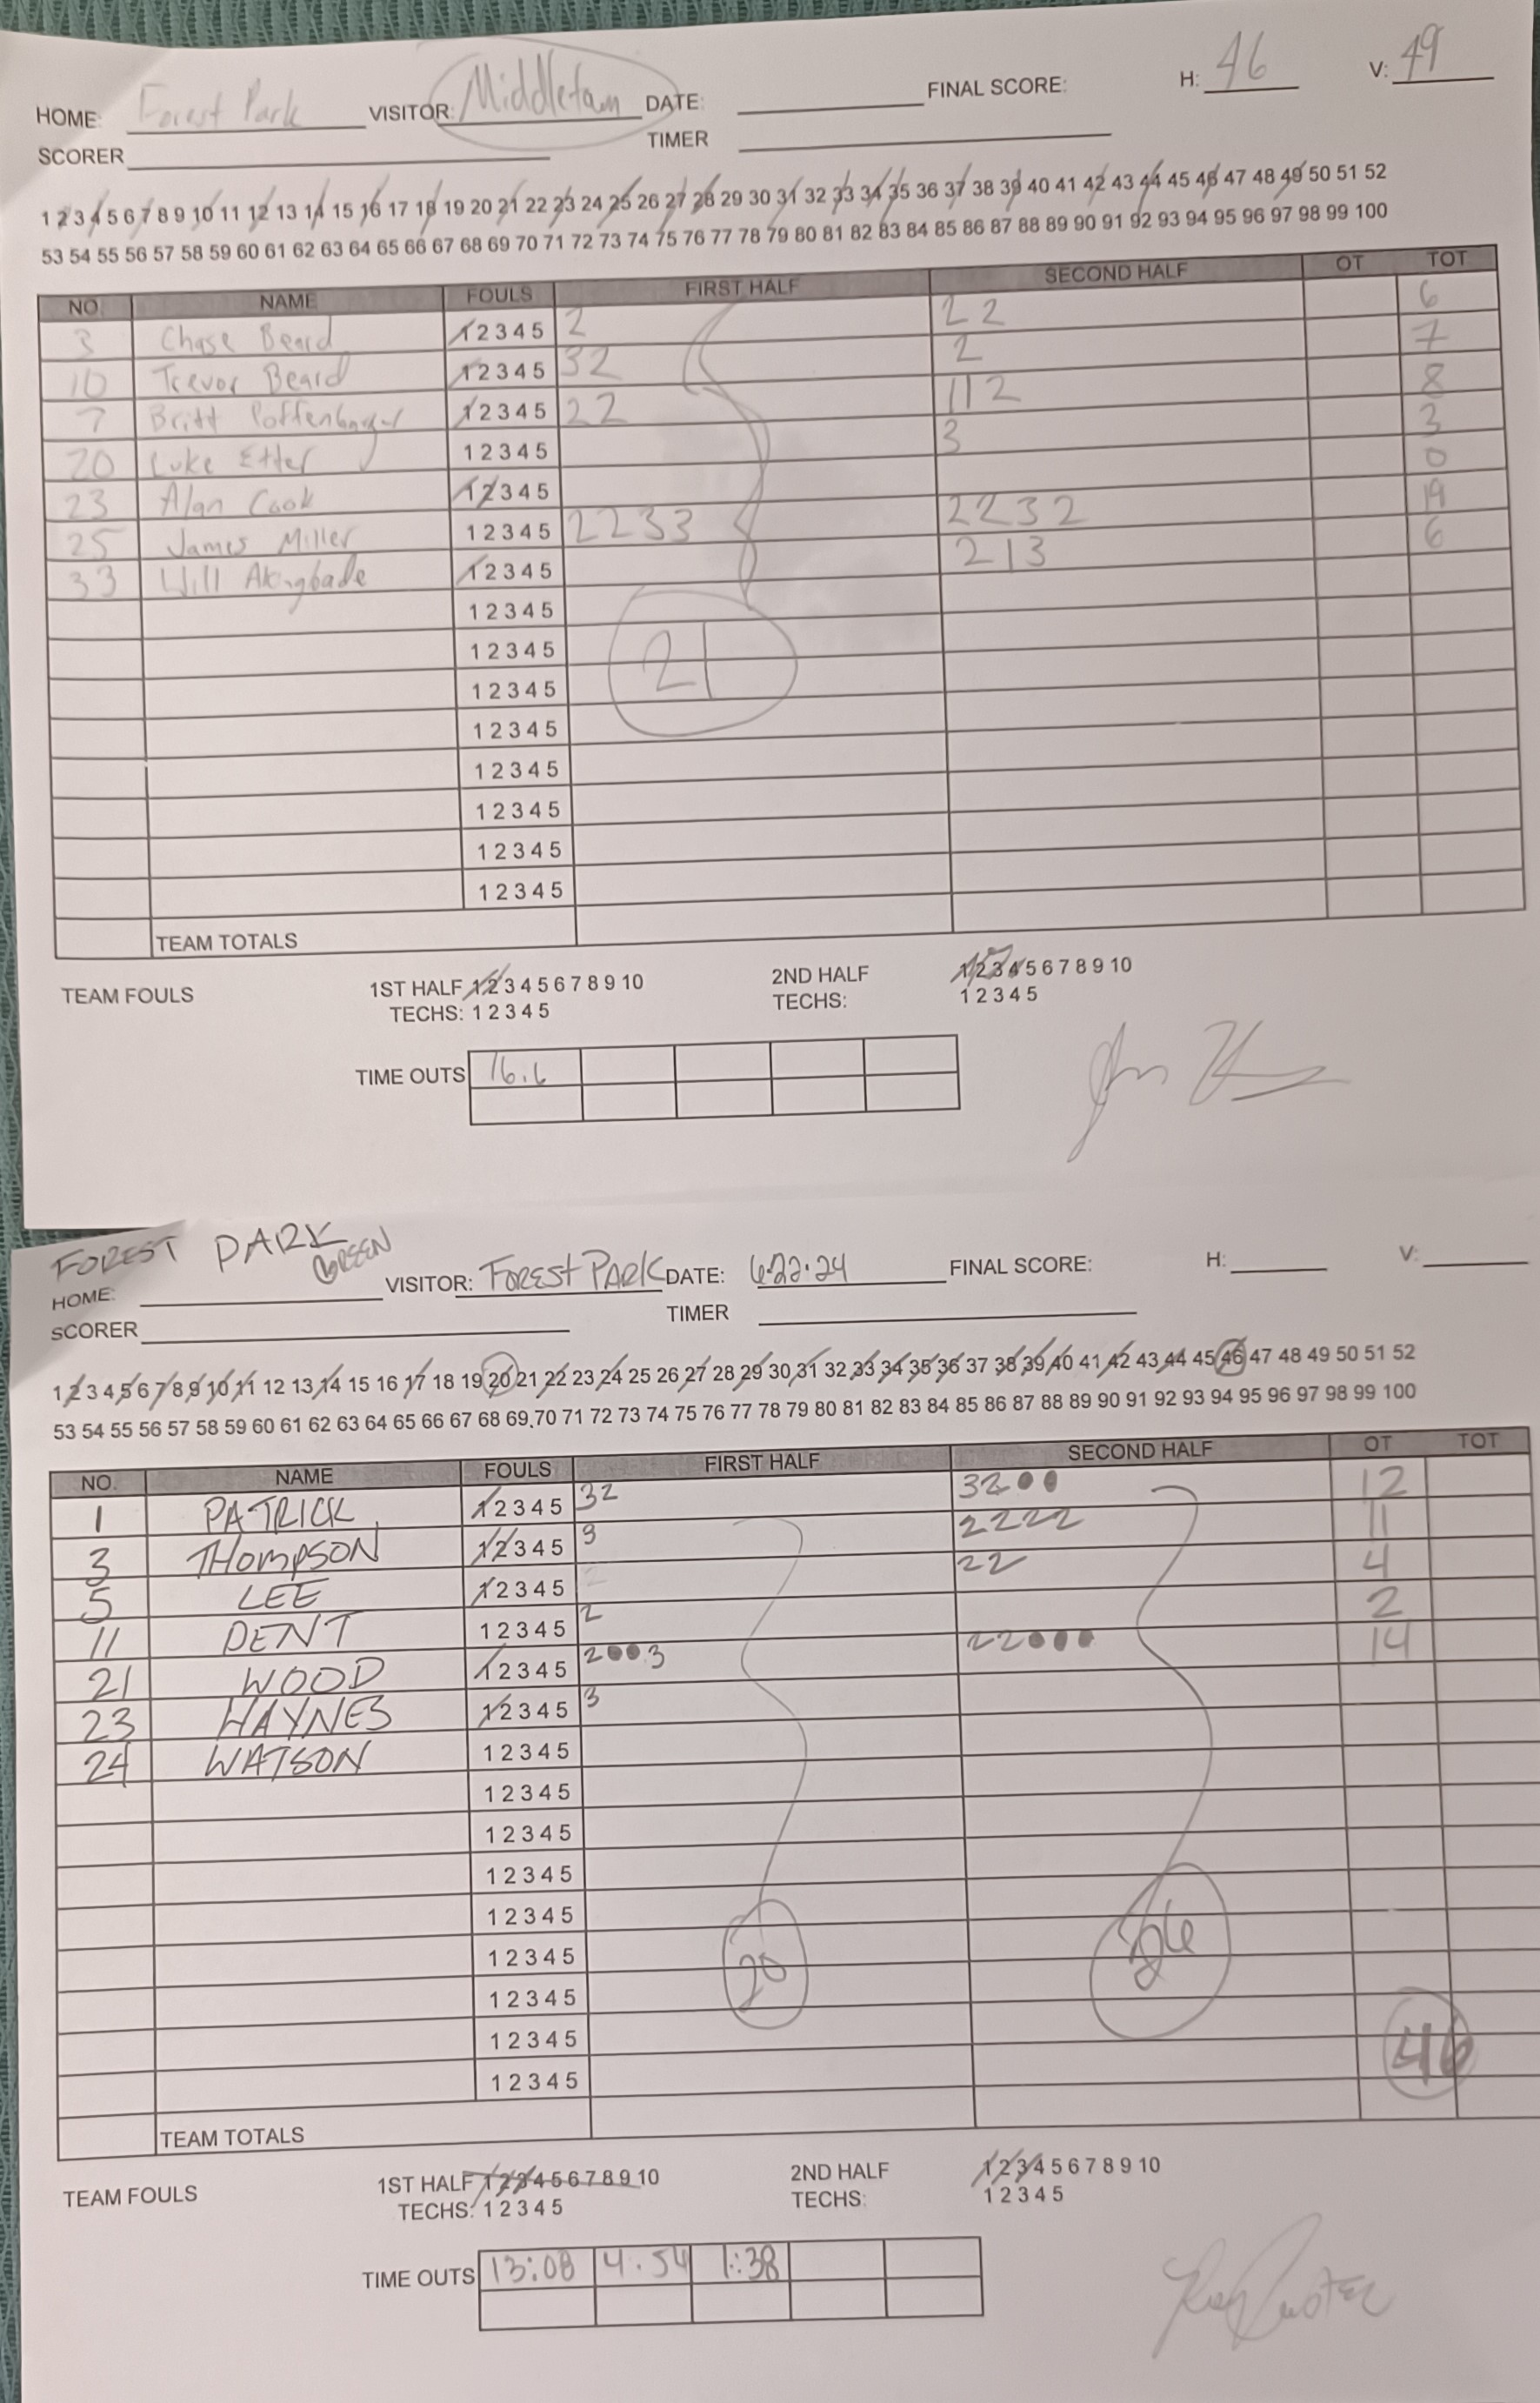 HOME: Forest Park VISITOR: Middletown DATE: FINAL SCORE: H: 46 V: 49
SCORER TIMER
1 2 3 4 5 6 7 8 9 10 11 12 13 14 15 16 17 18 19 20 21 22 23 24 25 26 27 28 29 30 31 32 33 34 35 36 37 38 39 40 41 42 43 44 45 46 47 48 49 50 51 52
53 54 55 56 57 58 59 60 61 62 63 64 65 66 67 68 69 70 71 72 73 74 75 76 77 78 79 80 81 82 83 84 85 86 87 88 89 90 91 92 93 94 95 96 97 98 99 100
NO. NAME FOULS FIRST HALF SECOND HALF OT TOT
3 Chase Beard 1 2 3 4 5 2 2 2 6
10 Trevor Beard 1 2 3 4 5 3 2 2 7
7 Britt 1 2 3 4 5 2 2 1 1 2 8
20 Luke Etter 1 2 3 4 5 3 3
23 Alan Cook 1 2 3 4 5 0
25 James Miller 1 2 3 4 5 2 2 3 3 2 2 3 2 19
33 Will Akingbade 1 2 3 4 5 2 1 3 6
1 2 3 4 5
1 2 3 4 5 21
1 2 3 4 5
1 2 3 4 5
1 2 3 4 5
1 2 3 4 5
1 2 3 4 5
1 2 3 4 5
TEAM TOTALS
TEAM FOULS 1ST HALF 1 2 3 4 5 6 7 8 9 10 2ND HALF 1 2 3 4 5 6 7 8 9 10
TECHS: 1 2 3 4 5 TECHS: 1 2 3 4 5
TIME OUTS 16.6
FOREST PARK GREEN
HOME: VISITOR: FOREST PARK DATE: 6.22.24 FINAL SCORE: H: V:
SCORER TIMER
1 2 3 4 5 6 7 8 9 10 11 12 13 14 15 16 17 18 19 20 21 22 23 24 25 26 27 28 29 30 31 32 33 34 35 36 37 38 39 40 41 42 43 44 45 46 47 48 49 50 51 52
53 54 55 56 57 58 59 60 61 62 63 64 65 66 67 68 69 70 71 72 73 74 75 76 77 78 79 80 81 82 83 84 85 86 87 88 89 90 91 92 93 94 95 96 97 98 99 100
NO. NAME FOULS FIRST HALF SECOND HALF OT TOT
1 PATRICK 1 2 3 4 5 3 2 3 2 12
3 THOMPSON 1 2 3 4 5 3 2 2 2 2 11
5 LEE 1 2 3 4 5 2 2 4
11 DENT 1 2 3 4 5 2 2
21 WOOD 1 2 3 4 5 2 3 2 2 14
23 HAYNES 1 2 3 4 5 3
24 WATSON 1 2 3 4 5
1 2 3 4 5
1 2 3 4 5
1 2 3 4 5
1 2 3 4 5
1 2 3 4 5 20 26
1 2 3 4 5
1 2 3 4 5 46
1 2 3 4 5
TEAM TOTALS
TEAM FOULS 1ST HALF 1 2 3 4 5 6 7 8 9 10 2ND HALF 1 2 3 4 5 6 7 8 9 10
TECHS: 1 2 3 4 5 TECHS: 1 2 3 4 5
TIME OUTS 13:08 4.54 1:38